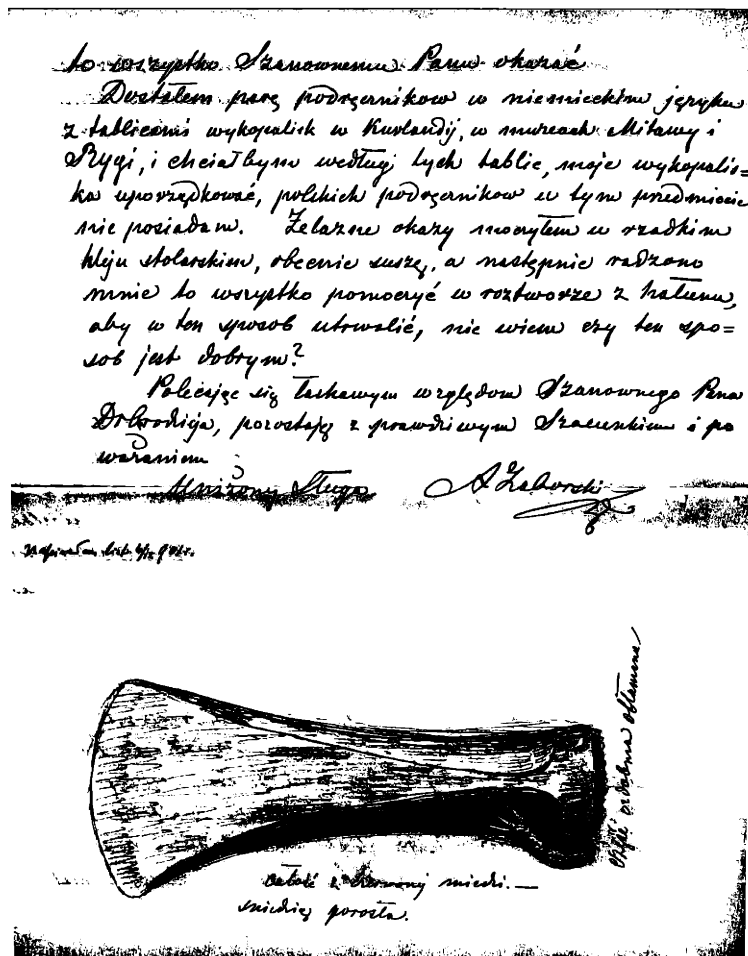 to wszystko Szanownemu Panu okazać
Dostałem parę podręcznikow w niemieckim języku
z tablicami wykopalisk w Kurlandij, w muzeach Mitawy i
Rygi, i chciałbym według tych tablic, moje wykopalis=
ka uporządkować, polskich podręcznikow w tym przedmiocie
nie posiadam. Żelazne okazy moczyłem w rzadkim
kleju stolarskim, obecnie suszę, a następnie radzono
mnie to wszystko pomoczyć w roztworze z hałunu,
aby w ten sposob utrwalić, nie wiem czy ten spo=
sob jest dobrym?
Polecając się łaskawym względom Szanownego Pana
Dobrodzieja, pozostaję z prawdziwym Szacunkiem i po
ważaniem
Uniżony Sługa A Zaborski
Napisałem list
część ozdobna obłamana
całość z czerwonej miedzi.—
śniedzią porosła.